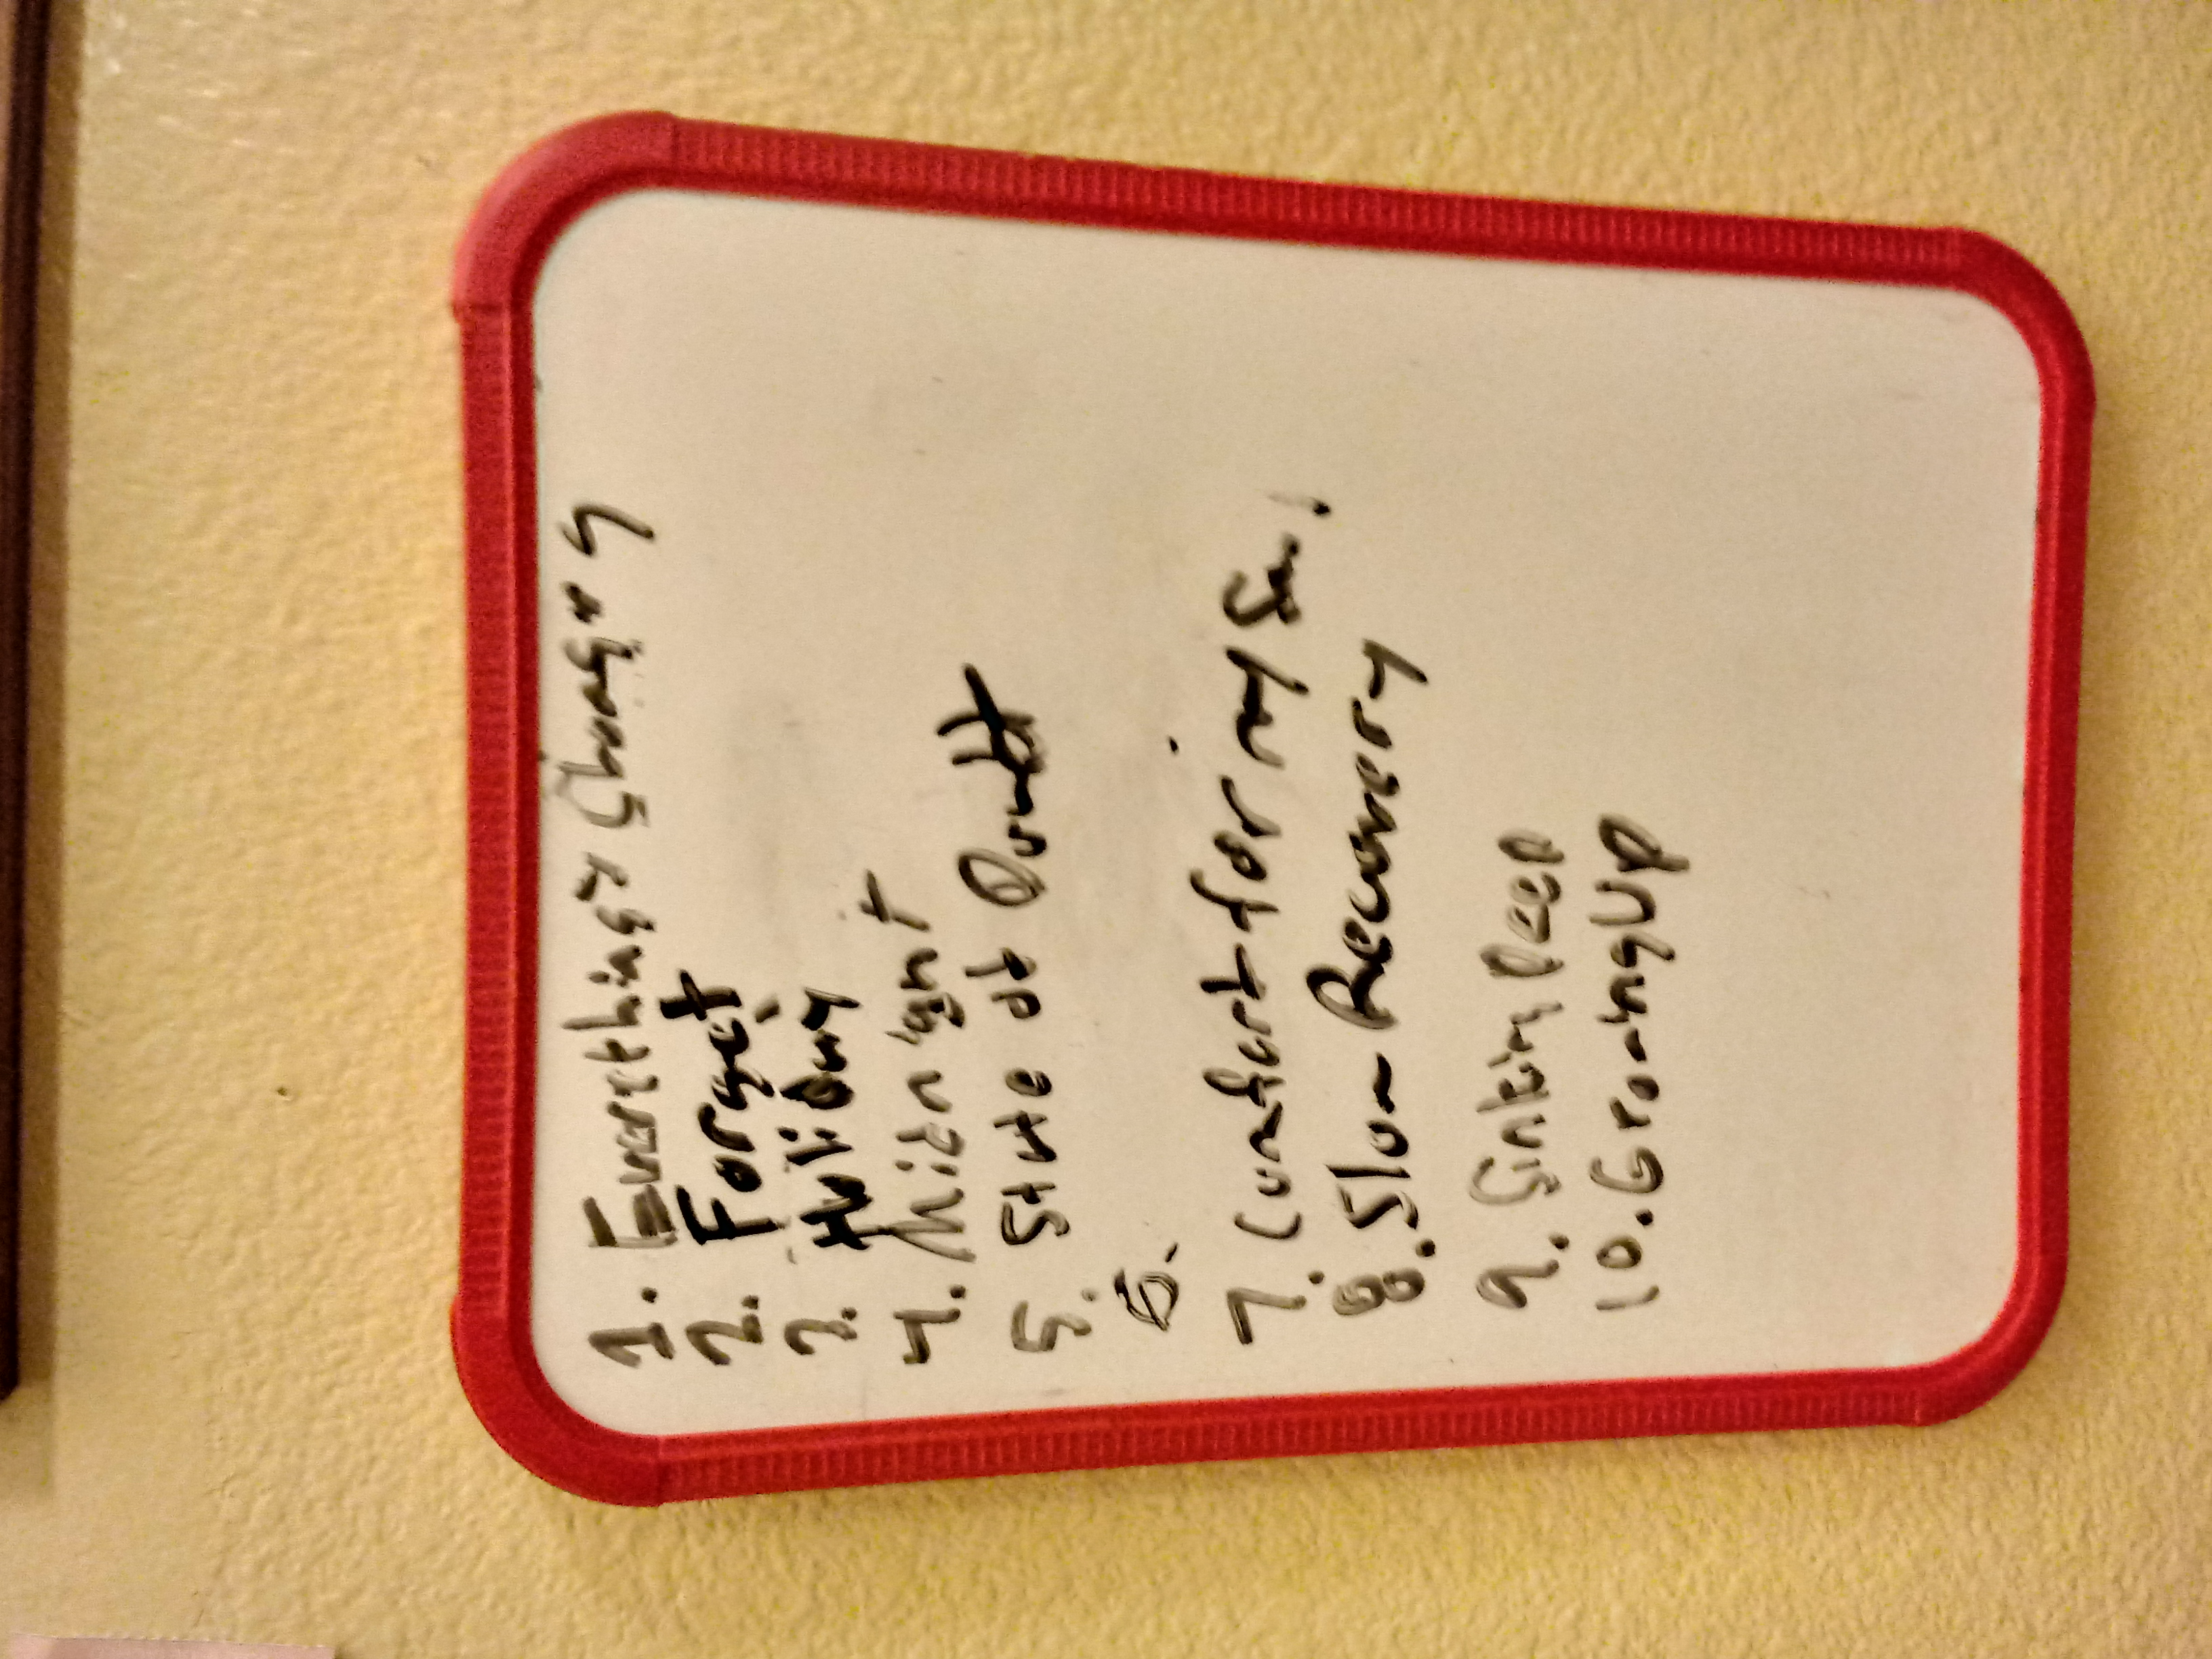 1. Everything's Changing
2. Forget
3. Holiday
4. Midnight
5. State of Doubt
6.
7. Comfort for my
8. Slow Recovery
9. Sinking Deep
10. Growing Up